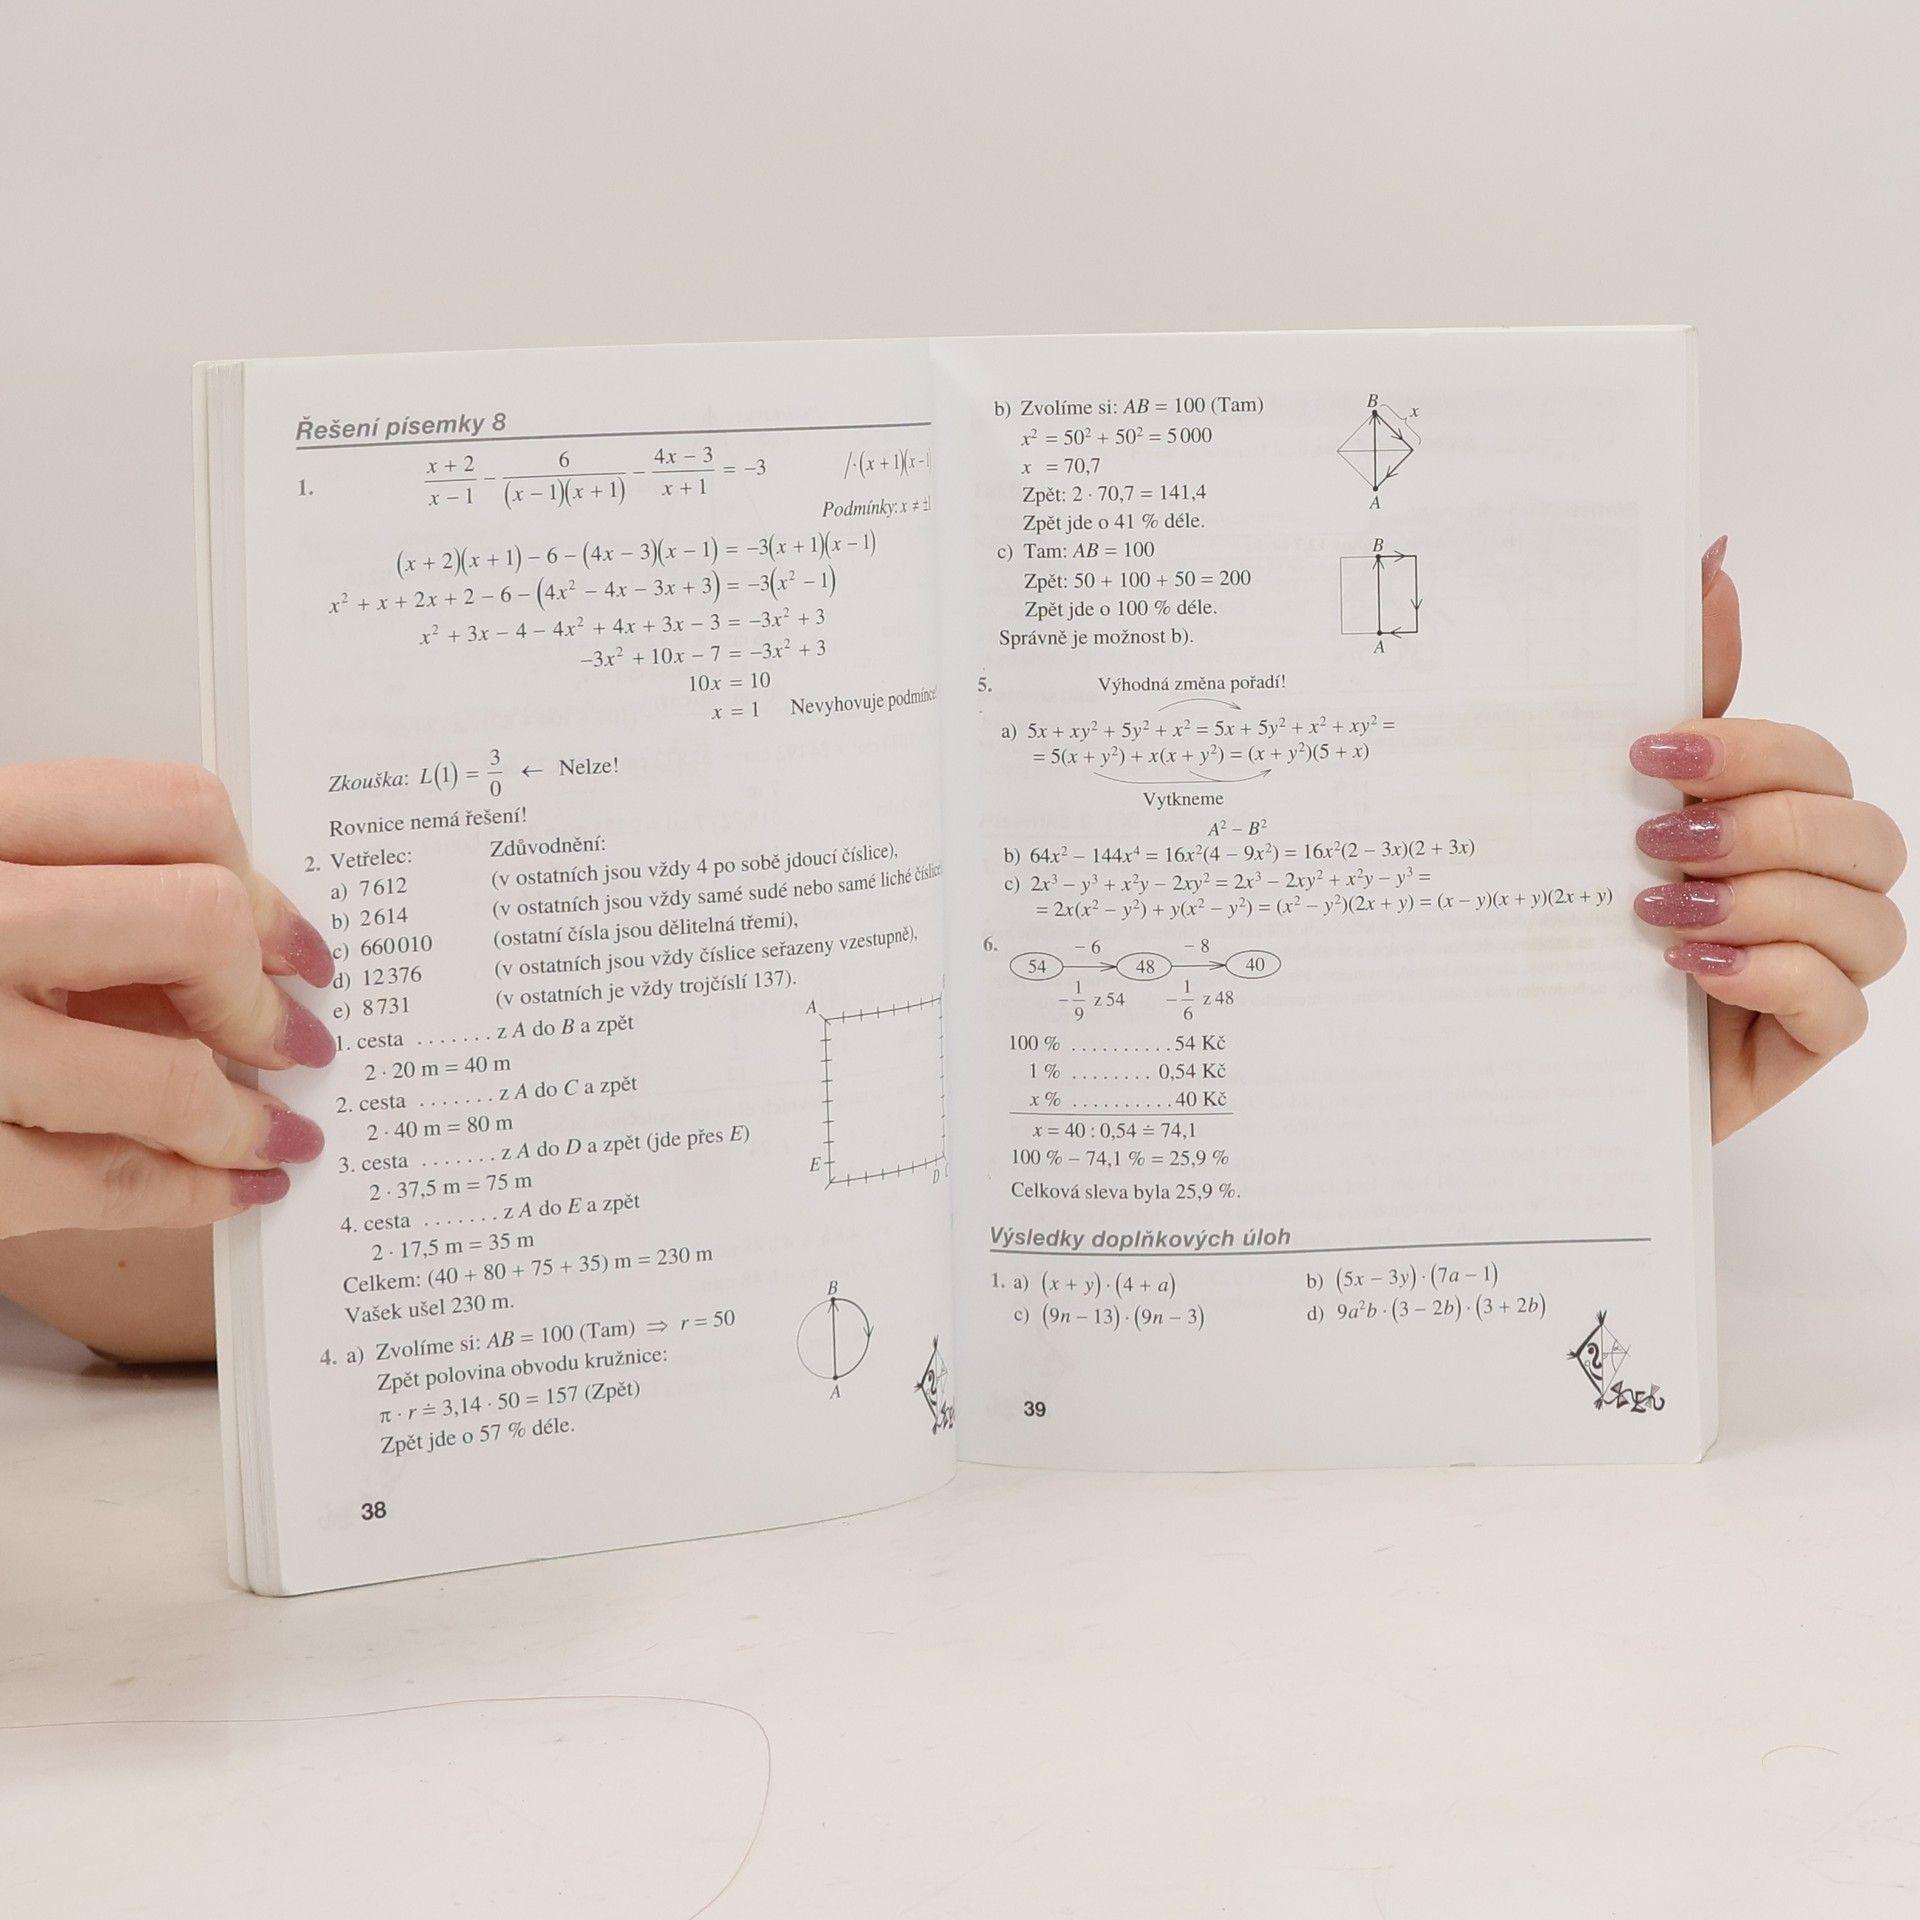 Řešení písemky 8
1. (x + 2)/(x − 1) − 6/((x − 1)(x + 1)) − (4x − 3)/(x + 1) = −3 /·(x + 1)(x − 1
Podmínky: x ≠ ±1
(x + 2)(x + 1) − 6 − (4x − 3)(x − 1) = −3(x + 1)(x − 1)
x² + x + 2x + 2 − 6 − (4x² − 4x − 3x + 3) = −3(x² − 1)
x² + 3x − 4 − 4x² + 4x + 3x − 3 = −3x² + 3
−3x² + 10x − 7 = −3x² + 3
10x = 10
x = 1 Nevyhovuje podmínce
Zkouška: L(1) = 3/0 ← Nelze!
Rovnice nemá řešení!
2. Vetřelec: Zdůvodnění:
a) 7612 (v ostatních jsou vždy 4 po sobě jdoucí číslice),
b) 2614 (v ostatních jsou vždy samé sudé nebo samé liché číslice
c) 660010 (ostatní čísla jsou dělitelná třemi),
d) 12376 (v ostatních jsou vždy číslice seřazeny vzestupně),
e) 8731 (v ostatních je vždy trojčíslí 137).
1. cesta ....... z A do B a zpět
2 · 20 m = 40 m
2. cesta ....... z A do C a zpět
2 · 40 m = 80 m
3. cesta ....... z A do D a zpět (jde přes E)
2 · 37,5 m = 75 m
4. cesta ....... z A do E a zpět
2 · 17,5 m = 35 m
Celkem: (40 + 80 + 75 + 35) m = 230 m
Vašek ušel 230 m.
A
E
D
4. a) Zvolíme si: AB = 100 (Tam) ⇒ r = 50
Zpět polovina obvodu kružnice:
π · r ≐ 3,14 · 50 = 157 (Zpět)
Zpět jde o 57 % déle.
B
A
38
b) Zvolíme si: AB = 100 (Tam)
x² = 50² + 50² = 5000
x = 70,7
Zpět: 2 · 70,7 = 141,4
Zpět jde o 41 % déle.
B
x
A
c) Tam: AB = 100
Zpět: 50 + 100 + 50 = 200
Zpět jde o 100 % déle.
Správně je možnost b).
B
A
5. Výhodná změna pořadí!
a) 5x + xy² + 5y² + x² = 5x + 5y² + x² + xy² =
= 5(x + y²) + x(x + y²) = (x + y²)(5 + x)
Vytkneme
A² − B²
b) 64x² − 144x⁴ = 16x²(4 − 9x²) = 16x²(2 − 3x)(2 + 3x)
c) 2x³ − y³ + x²y − 2xy² = 2x³ − 2xy² + x²y − y³ =
= 2x(x² − y²) + y(x² − y²) = (x² − y²)(2x + y) = (x − y)(x + y)(2x + y)
6. − 6 − 8
54 48 40
− 1/9 z 54 − 1/6 z 48
100 % .......... 54 Kč
1 % ........ 0,54 Kč
x % .......... 40 Kč
x = 40 : 0,54 ≐ 74,1
100 % − 74,1 % = 25,9 %
Celková sleva byla 25,9 %.
Výsledky doplňkových úloh
1. a) (x + y) · (4 + a) b) (5x − 3y) · (7a − 1)
c) (9n − 13) · (9n − 3) d) 9a²b · (3 − 2b) · (3 + 2b)
39